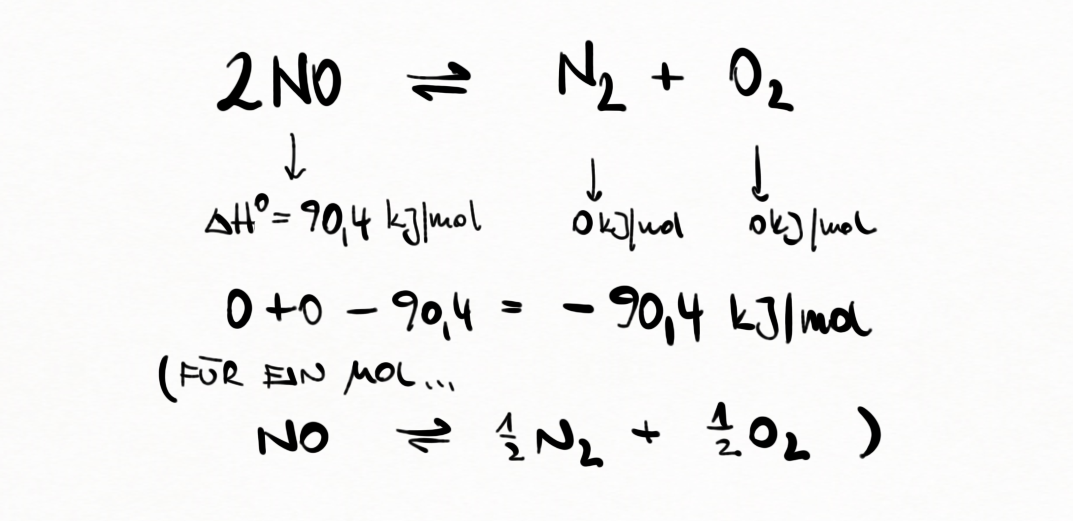 2NO ⇌ N₂ + O₂
↓ ↓ ↓
ΔH⁰ = 90,4 kJ/mol 0 kJ/mol 0 kJ/mol
0 + 0 − 90,4 = − 90,4 kJ/mol
(FÜR EIN MOL...
NO ⇌ ½ N₂ + ½ O₂ )